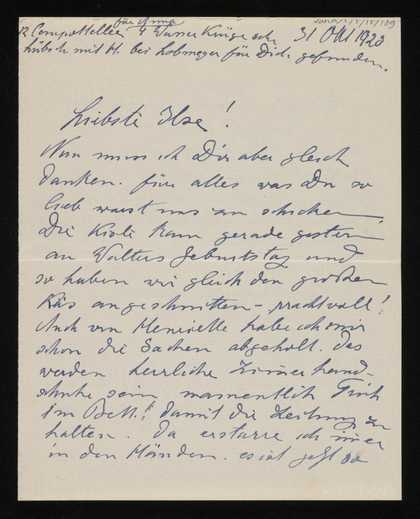 für Anna
12 Compotteller 4 Wasser Krüge sehr 31 Okt 1920
hübsch mit M. bei Lobmeyer für Dich gefunden.
Liebste Ilse!
Nun muss ich Dir aber gleich
danken für alles was Du so
lieb warst uns zu schicken.
Die Kiste kam gerade gestern
an Walters Geburtstag und
so haben wir gleich den großen
Käs angeschnitten – prachtvoll!
Auch von Henriette habe ich mir
schon die Sachen abgeholt. Das
werden herrliche Zimmerhand-
schuhe sein namentlich früh
im Bett! damit die Zeitung zu
halten. Da erstarre ich immer
in den Händen. es ist jetzt so